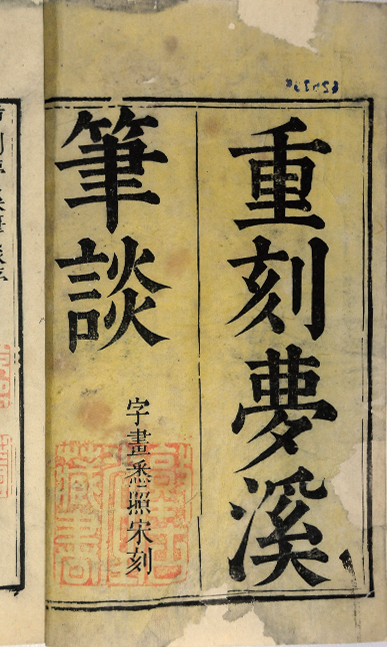 重刻夢溪
筆談
字畫悉照宋刻